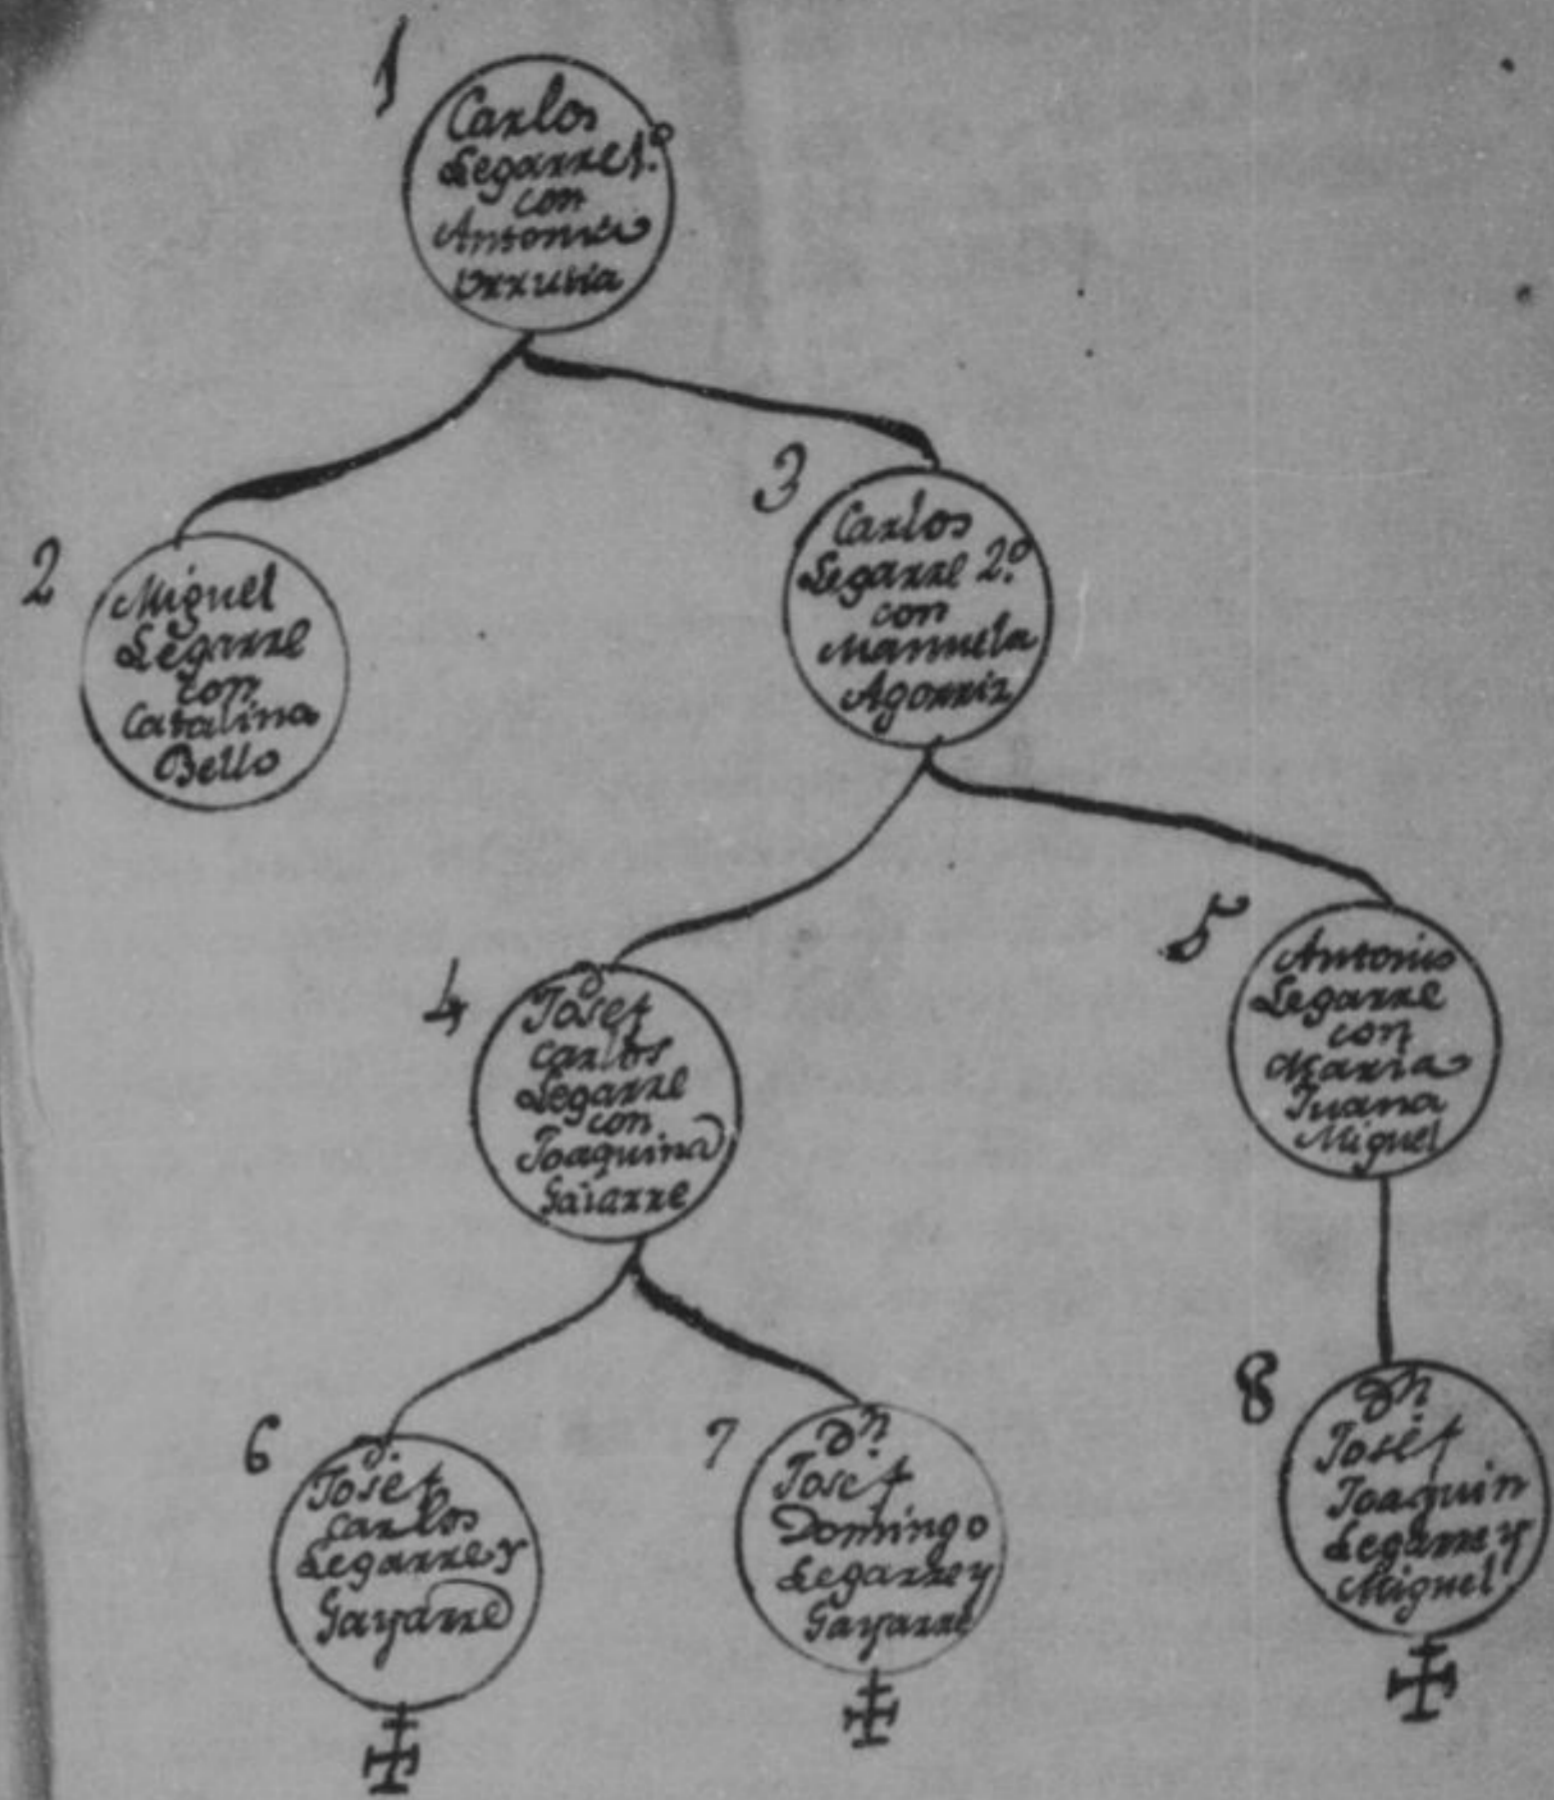 1
Carlos
Legarre 1.º
con
Antonia
Urrutia
2
Miguel
Legarre
con
Catalina
Bello
3
Carlos
Legarre 2.º
con
Manuela
Agorriz
4
d
Josef
Carlos
Legarre
con
Joaquina
Gaiarre
5
Antonio
Legarre
con
Maria
Juana
Miguel
6
d.
Josef
Carlos
Legarre y
Gayarre
7
dn.
Josef
Domingo
Legarre y
Gayarre
8
dn
Josef
Joaquin
Legarre y
Miguel